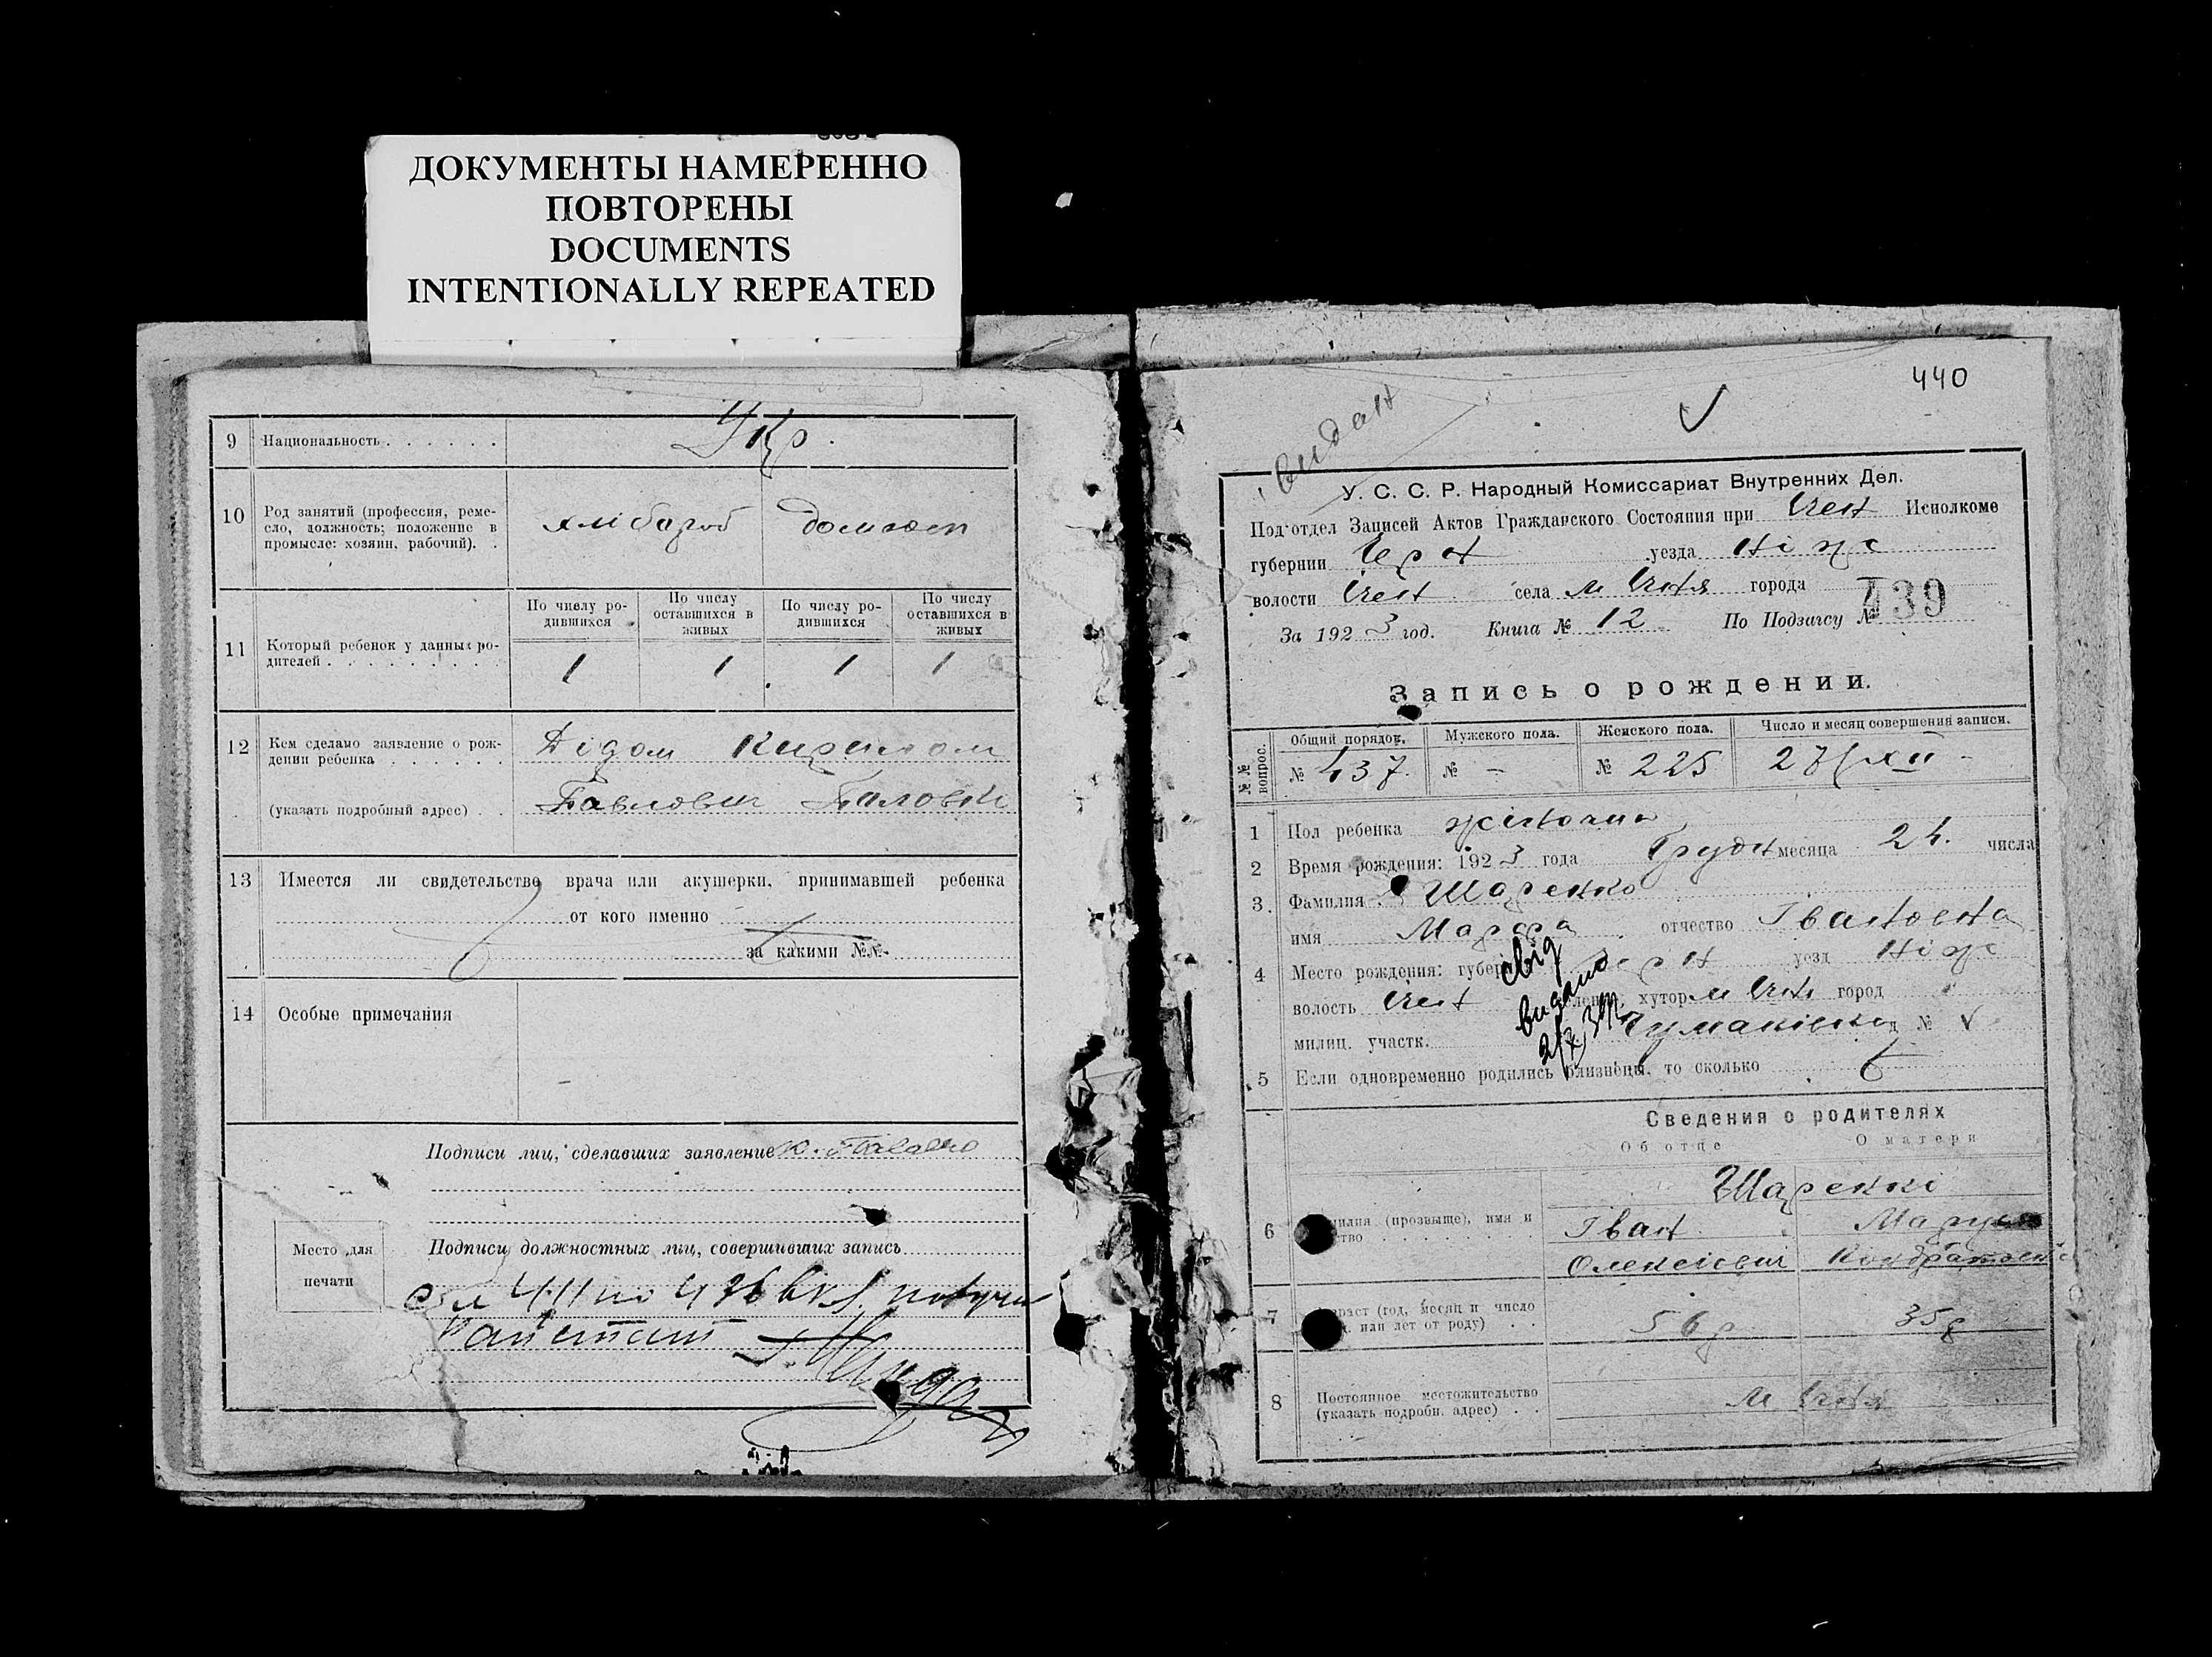 ДОКУМЕНТЫ НАМЕРЕННО
ПОВТОРЕНЫ
DOCUMENTS
INTENTIONALLY REPEATED
9 Национальность . . . . . . Укр.
10 Род занятий (профессия, реме-
сло, должность; положение в
промысле: хозяин, рабочий). .
хлібороб
11 Который ребенок у данных ро-
дителей . . . . . . . . . .
По числу ро-
дившихся
По числу
оставшихся в
живых
По числу ро-
дившихся
По числу
оставшихся в
живых
1 1 1 1
12 Кем сделано заявление о рож-
дении ребенка . . . . . .
(указать подробный адрес) . .
Дідом Кирилом
Павлович
13 Имеется ли свидетельство врача или акушерки, принимавшей ребенка
от кого именно
за какими №№
14 Особые примечания
Подписи лиц, сделавших заявление
Подписи должностных лиц, совершивших запись
Место для
печати
440
видан
У. С. С. Р. Народный Комиссариат Внутренних Дел.
Подотдел Записей Актов Гражданского Состояния при Ічен Исполкоме
губернии Черн уезда Ніж
волости Ічен села м Ічня города
За 1923 год. Книга № 12 По Подзагсу № 439
Запись о рождении.
№№ вопрос.
Общий порядов. Мужского пола. Женского пола. Число и месяц совершения записи.
№ 437. № — № 225 27/XII
1 Пол ребенка жіночий
2 Время рождения: 1923 года Грудн месяца 24. числа
3. Фамилия Шаренко
имя Марфа отчество Івановна
4 Место рождения: губер Черн уезд Ніж
волость Ічен хутор м Ічня город
милиц. участк.
свід
видано
5 Если одновременно родились близнецы, то сколько
Сведения о родителях
Об отце О матери
Шаренкі
6 милия (прозвище), имя и
ство . . . . . . . . .
Іван Маруся
Олексієвич Кондратовн
7 раст (год, месяц и число
или лет от роду) . .
56 р 35 р
8 Постоянное местожительство
(указать подробн. адрес) . .
м Ічня